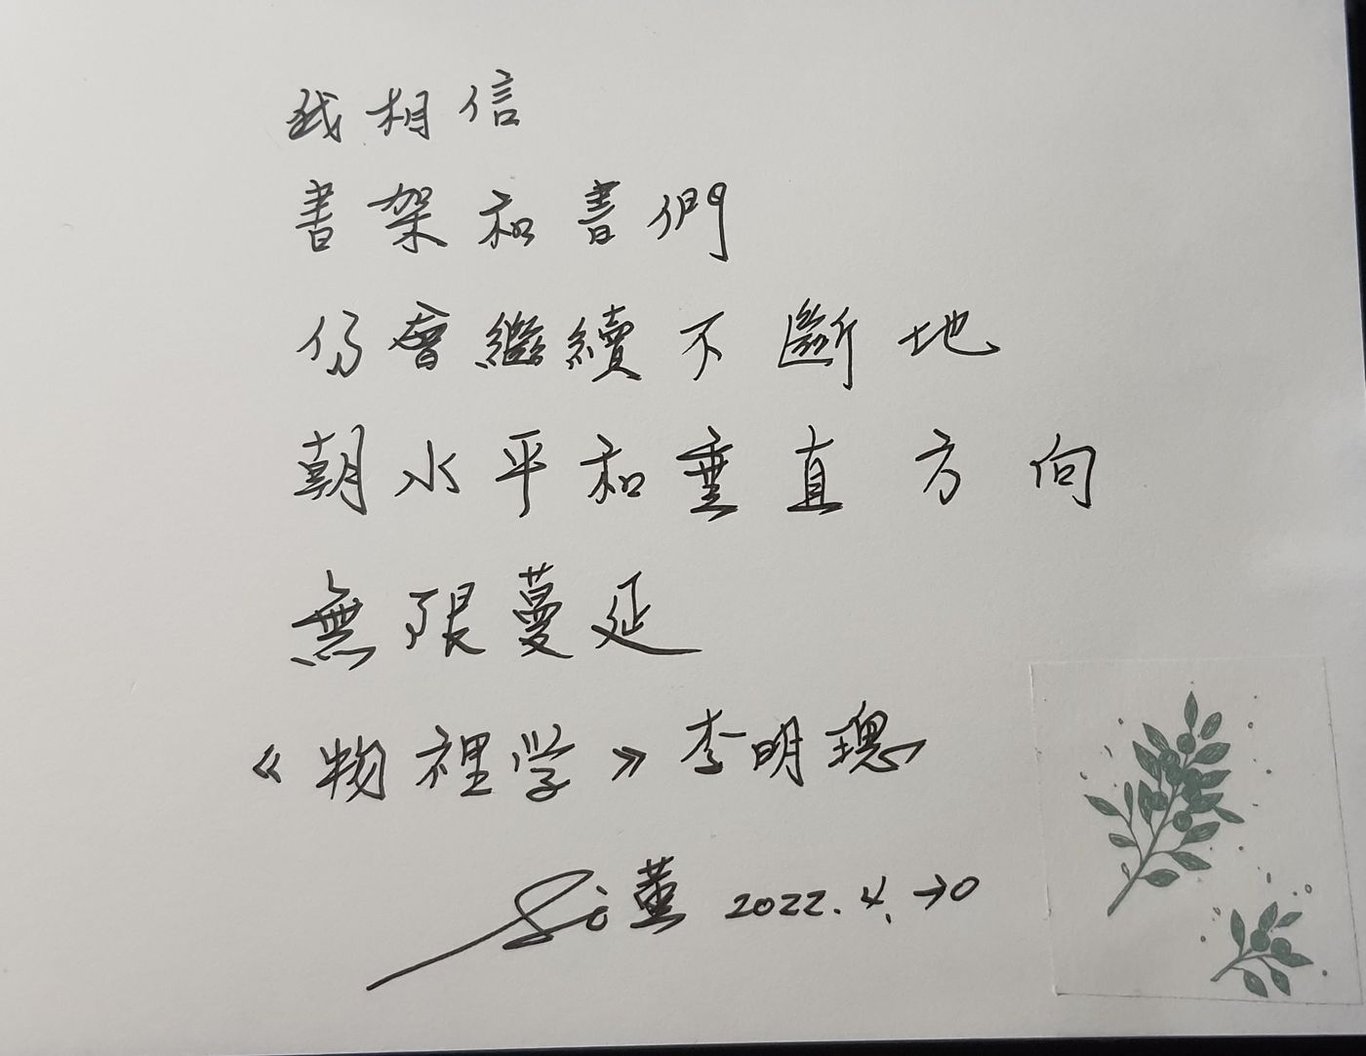 我相信
書架和書們
仍會繼續不斷地
朝水平和垂直方向
無限蔓延
《物裡学》李明璁
董 2022.4.20